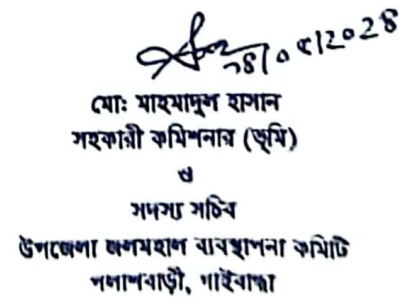 মোঃ মাহমাদুল হাসান
সহকারী কমিশনার (ভূমি)
ও
সদস্য সচিব
উপজেলা জলমহাল ব্যবস্থাপনা কমিটি
পলাশবাড়ী, গাইবান্ধা